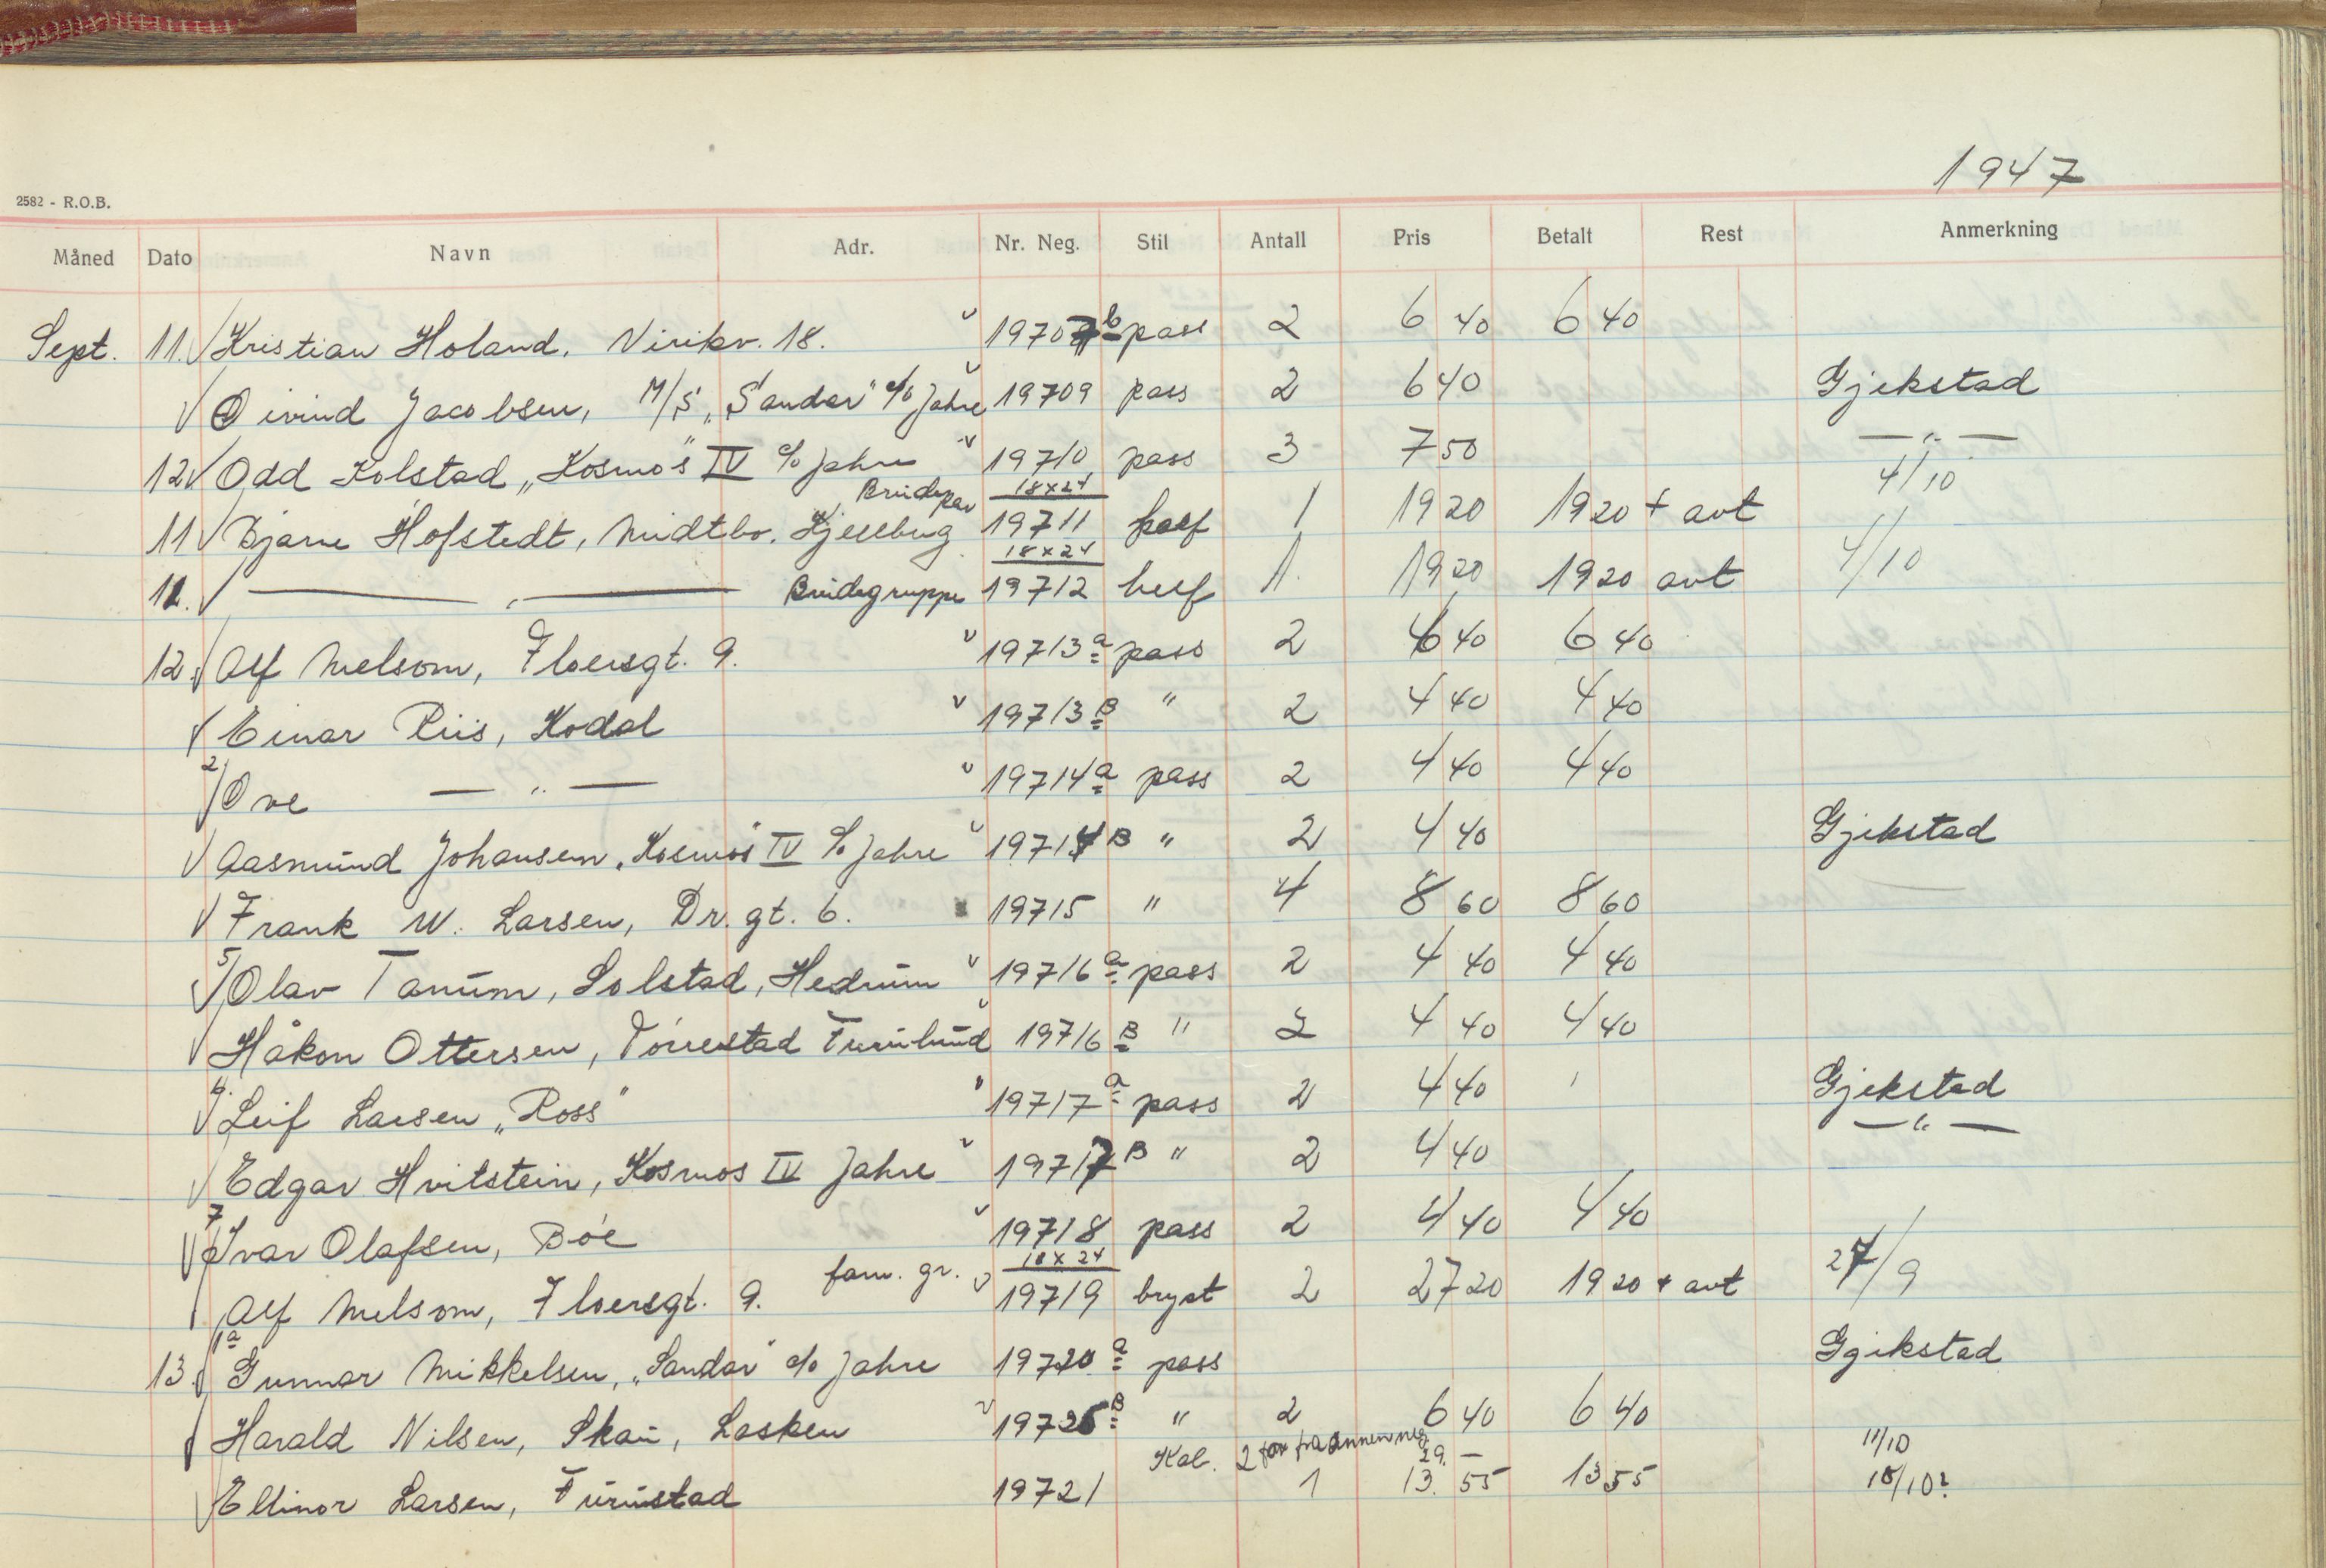 1947
2582 - R.O.B.
Måned Dato Navn Adr. Nr. Neg. Stil Antall Pris Betalt Rest Anmerkning
Sept. 11. Kristian Holand. Virikv. 18. 19707 b pass 2 6 40 6 40
Øivind Jacobsen, M/S „Sandar" c/o Jahre 19709 pass 2 6 40 Gjekstad
12 Odd Kolstad „Kosmos" IV c/o Jahre 19710 pass 3 7 50 — " —
Brudepar 18x24 4/10
11 Bjarne Hofstedt, Midtbo. Kjellberg 19711 half 1 19 20 19 20 + avt
18x24 4/10
12. — " — Brudegruppe 19712 helf 1 19 20 19 20 avt
12. Alf Melsom, Floersgt. 9. 19713 a pass 2 6 40 6 40
Einar Riis, Kodal 19713 B " 2 4 40 4 40
2/ Ove — " — 19714 a pass 2 4 40 4 40
Aasmund Johansen „Kosmos" IV c/o Jahre 19714 B " 2 4 40 Gjekstad
Frank W. Larsen, Dr. gt. 6. 19715 " 4 8 60 8 60
5/ Olav Tanum, Solstad, Hedrum 19716 a pass 2 4 40 4 40
Håkon Ottersen, Törrestad Furulund 19716 B " 2 4 40 4 40
4. Leif Larsen „Ross" 19717 a pass 2 4 40 Gjekstad
Edgar Hvitstein, Kosmos IV Jahre 19717 B " 2 4 40 — " —
7 Ivar Olafsen, Bøe 19718 pass 2 4 40 4 40
fam. gr. 18x24 27/9
Alf Melsom, Floersgt. 9. 19719 bryst 2 27 20 19 20 + avt
1a
13. Gunnar Mikkelsen, „Sandar" c/o Jahre 19720 a pass Gjekstad
Harald Nilsen, Skau, Lasken 19720 B " 2 6 40 6 40
Kab. 2 fra annen neg 29. — 11/10
Ellinor Larsen, Furustad 19721 1 13. 55 13 55 18/10?